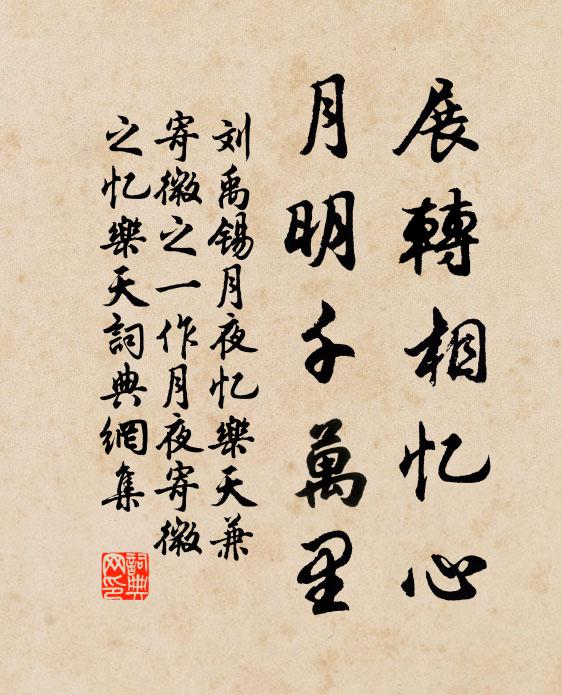 展轉相忆心
月明千萬里
刘禹锡月夜忆樂天兼
寄微之一作月夜寄微
之忆樂天詞典網集
詞典
网印